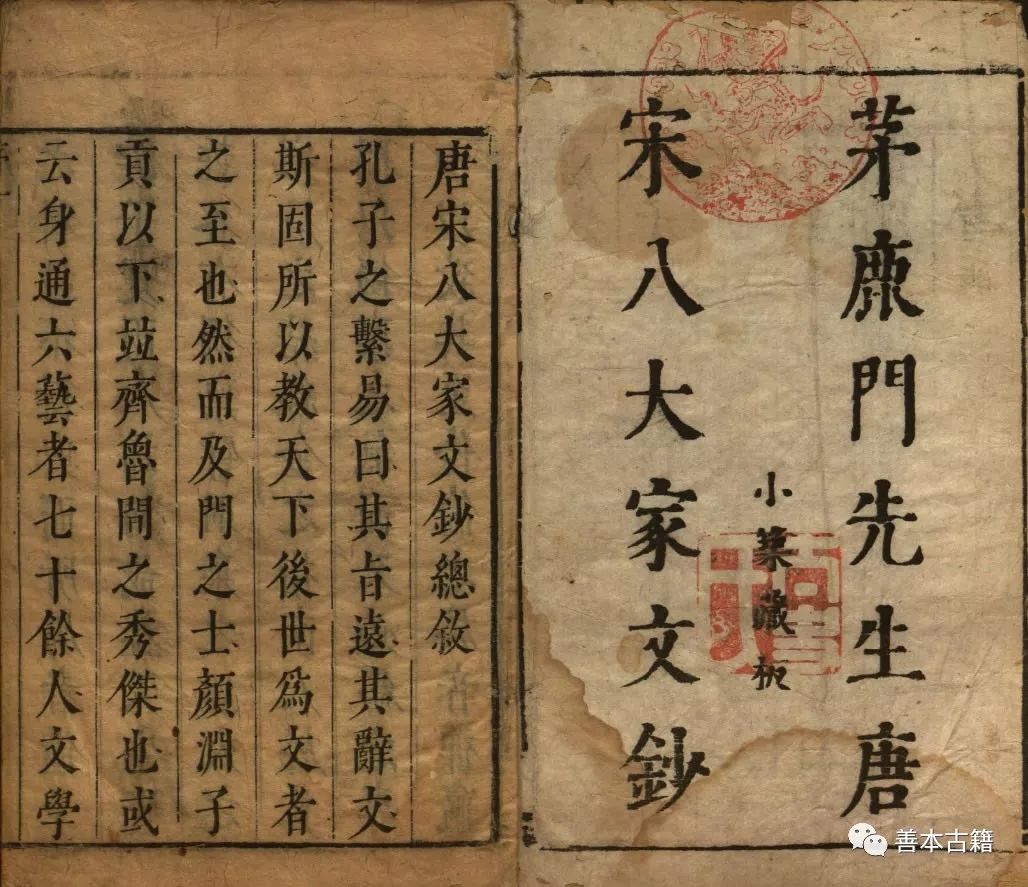 茅鹿門先生唐
宋八大家文鈔
小築藏板
唐宋八大家文鈔總敘
孔子之繫易曰其旨遠其辭文
斯固所以教天下後世爲文者
之至也然而及門之士顏淵子
貢以下竝齊魯間之秀傑也或
云身通六藝者七十餘人文學
善本古籍